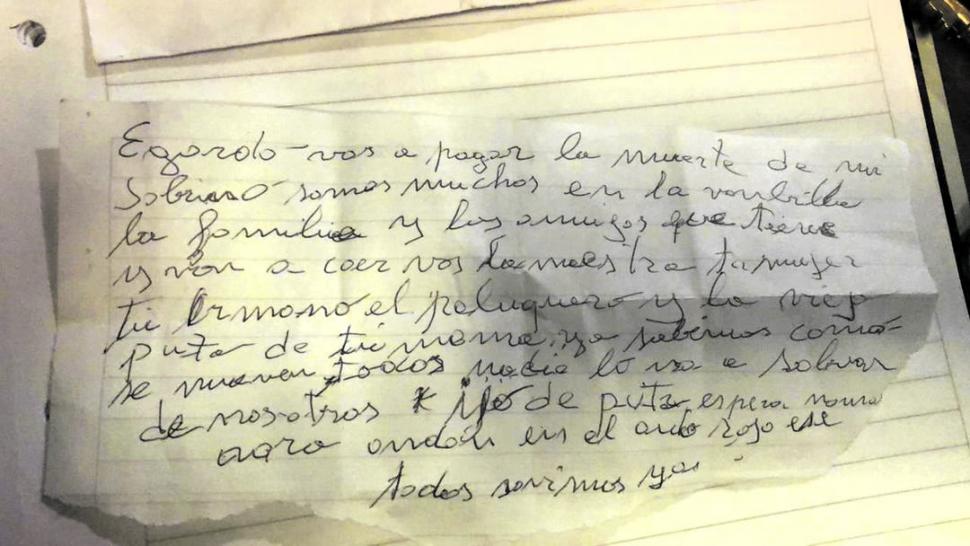 Egardo-vas a pagar la muerte de mi
Sobrino somos muchos en la
la familia y los amigos que tiene
y van a caer vos la maestra tu mujer
tu ermano el peluquero y la vieja
puta de tu mama, ya sabemos como
se mueven todos nadie lo va a salvar
de nosotros ijo de puta espera
aora andás en el auto rojo ese
todos